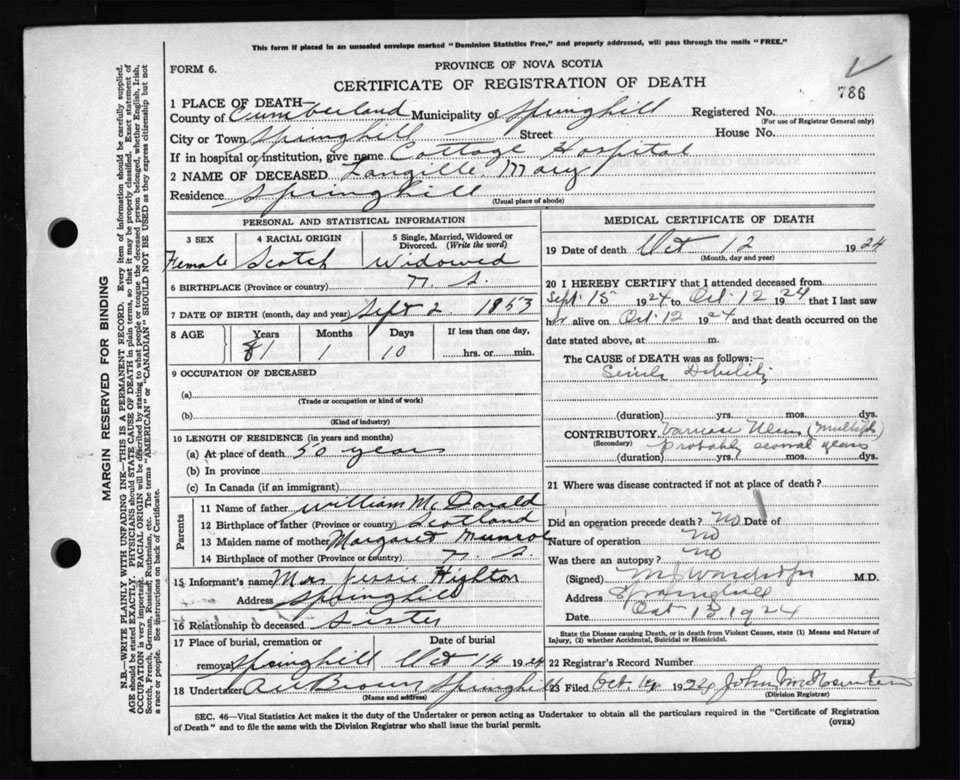 This form if placed in an unsealed envelope marked "Dominion Statistics Free," and properly addressed, will pass through the mails "FREE."
FORM 6.
PROVINCE OF NOVA SCOTIA
CERTIFICATE OF REGISTRATION OF DEATH
786
1 PLACE OF DEATH—
County of Cumberland Municipality of Springhill Registered No.
(For use of Registrar General only)
City or Town Springhill Street House No.
If in hospital or institution, give name Cottage Hospital
2 NAME OF DECEASED Langille Mary
Residence Springhill
(Usual place of abode)
PERSONAL AND STATISTICAL INFORMATION
3 SEX 4 RACIAL ORIGIN 5 Single, Married, Widowed or Divorced. (Write the word)
Female Scotch Widowed
6 BIRTHPLACE (Province or country) N. S.
7 DATE OF BIRTH (month, day and year) Sept 2 1853
8 AGE Years Months Days If less than one day,
1 10 hrs. or min.
9 OCCUPATION OF DECEASED
(a)
(Trade or occupation or kind of work)
(b)
(Kind of industry)
10 LENGTH OF RESIDENCE (in years and months)
(a) At place of death 50 years
(b) In province
(c) In Canada (if an immigrant)
Parents
11 Name of father William McDonald
12 Birthplace of father (Province or country) Scotland
13 Maiden name of mother Margaret Munroe
14 Birthplace of mother (Province or country) N. S.
15 Informant's name Mrs Jessie Highton
Address Springhill
16 Relationship to deceased Sister
17 Place of burial, cremation or Date of burial
removal Springhill Oct 14 1924
18 Undertaker Brown Springhill
(Name and address)
MEDICAL CERTIFICATE OF DEATH
19 Date of death Oct 12 1924
(Month, day and year)
20 I HEREBY CERTIFY that I attended deceased from
Sept. 15 1924 to Oct. 12 1924 that I last saw
her alive on Oct. 12 1924 and that death occurred on
date stated above, at m.
The CAUSE OF DEATH was as follows:—
Senile Debility
(duration) yrs. mos. dys.
CONTRIBUTORY Varicose Ulcers (multiple)
(Secondary) probably several years
(duration) yrs. mos. dys.
21 Where was disease contracted if not at place of death?
Did an operation precede death? No Date of
Nature of operation No
Was there an autopsy? No
(Signed) M.D.
Address Springhill
Date Oct 13 1924
State the Disease causing Death, or in death from Violent Causes, state (1) Means and Nature of
Injury, (2) whether Accidental, Suicidal or Homicidal.
22 Registrar's Record Number
23 Filed Oct. 14 1924 John
(Division Registrar)
SEC. 46—Vital Statistics Act makes it the duty of the Undertaker or person acting as Undertaker to obtain all the particulars required in the "Certificate of Registration
of Death" and to file the same with the Division Registrar who shall issue the burial permit.
(OVER)
MARGIN RESERVED FOR BINDING
N.B.—WRITE PLAINLY WITH UNFADING INK—THIS IS A PERMANENT RECORD. Every item of information should be carefully supplied.
AGE should be stated EXACTLY. PHYSICIANS should STATE CAUSE OF DEATH in plain terms, so that it may be properly classified. Exact statement of
OCCUPATION is very important. RACIAL ORIGIN will be described by stating to what people or tongue the deceased person belonged, whether English, Irish,
Scotch, French, German, Russian, Ruthenian, etc. The terms "AMERICAN" or "CANADIAN" SHOULD NOT BE USED as they express citizenship but not
a race or people. See instructions on back of Certificate.